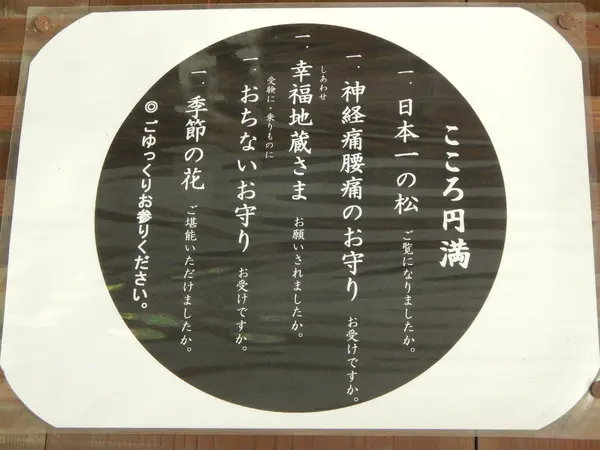 こころ円満
一. 日本一の松 ご覧になりましたか。
一. 神経痛腰痛のお守り お受けですか。
一. 幸福地蔵さま お願いされましたか。
しあわせ
一. おちないお守り お受けですか。
受験に・乗りものに
一. 季節の花 ご堪能いただけましたか。
◎ごゆっくりお参りください。